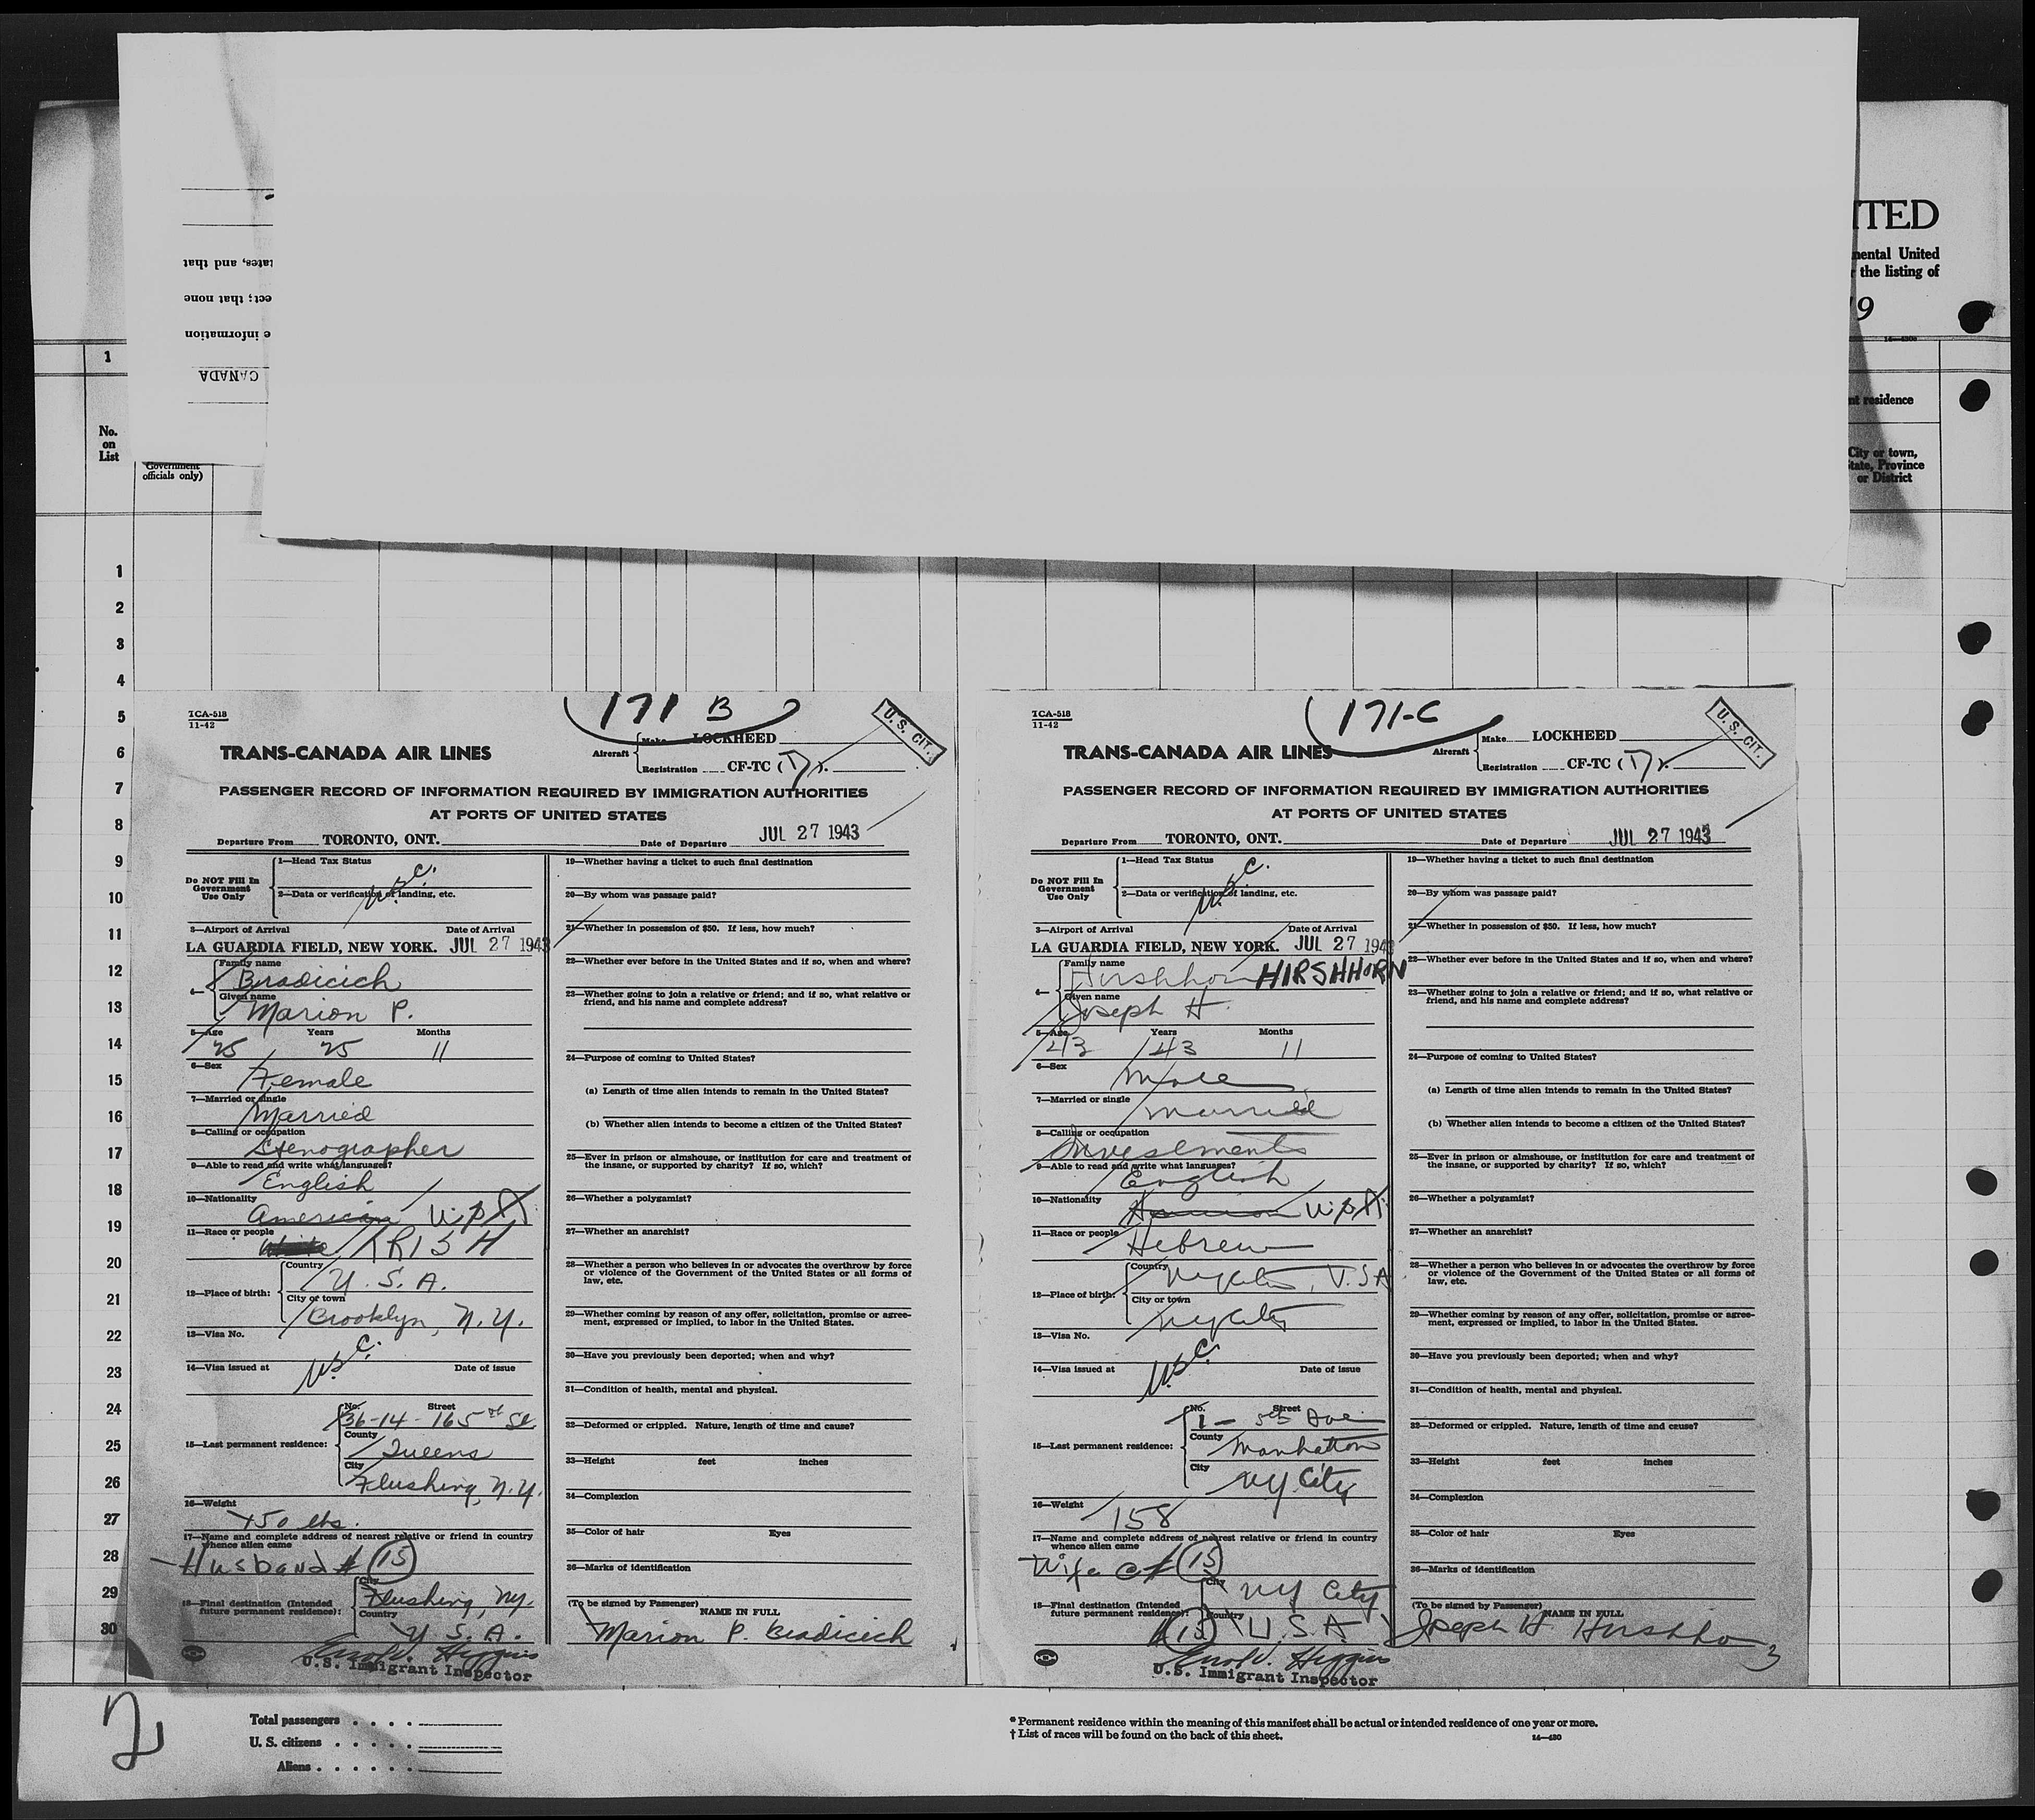 ITED
nental United
r the listing of
19
14—480c
tates, and that
ect; that none
e information
CANADA
1
nt residence
No.
on
List
Government
officials only)
City or town,
State, Province
or District
1
2
3
4
5
6
7
8
9
10
11
12
13
14
15
16
17
18
19
20
21
22
23
24
25
26
27
28
29
30
171 B
TCA-518
11-42
U. S. CIT.
TRANS-CANADA AIR LINES
Aircraft
Make LOCKHEED
Registration CF-TC (T).
PASSENGER RECORD OF INFORMATION REQUIRED BY IMMIGRATION AUTHORITIES
AT PORTS OF UNITED STATES
Departure From TORONTO, ONT. Date of Departure JUL 27 1943
Do NOT Fill In
Government
Use Only
1—Head Tax Status
U.S.C.
2—Data or verification of landing, etc.
3—Airport of Arrival Date of Arrival
LA GUARDIA FIELD, NEW YORK. JUL 27 1943
4— Family name
Bradicich
Given name
Marion P.
5—Age Years Months
25 25 11
6—Sex
Female
7—Married or single
Married
8—Calling or occupation
Stenographer
9—Able to read and write what languages?
English
10—Nationality
American U.S.A.
11—Race or people
White IRISH
12—Place of birth:
Country
U. S. A.
City or town
Brooklyn, N.Y.
13—Visa No.
U.S.C.
14—Visa issued at Date of issue
15—Last permanent residence:
No. Street
36-14-165th St.
County
Queens
City
Flushing, N.Y.
16—Weight
150 lbs.
17—Name and complete address of nearest relative or friend in country
whence alien came
Husband # 15
18—Final destination (Intended
future permanent residence):
City
Flushing, N.Y.
Country
U. S. A.
Higgins
U.S. Immigrant Inspector
19—Whether having a ticket to such final destination
20—By whom was passage paid?
21—Whether in possession of $50. If less, how much?
22—Whether ever before in the United States and if so, when and where?
23—Whether going to join a relative or friend; and if so, what relative or
friend, and his name and complete address?
24—Purpose of coming to United States?
(a) Length of time alien intends to remain in the United States?
(b) Whether alien intends to become a citizen of the United States?
25—Ever in prison or almshouse, or institution for care and treatment of
the insane, or supported by charity? If so, which?
26—Whether a polygamist?
27—Whether an anarchist?
28—Whether a person who believes in or advocates the overthrow by force
or violence of the Government of the United States or all forms of
law, etc.
29—Whether coming by reason of any offer, solicitation, promise or agree-
ment, expressed or implied, to labor in the United States.
30—Have you previously been deported; when and why?
31—Condition of health, mental and physical.
32—Deformed or crippled. Nature, length of time and cause?
33—Height feet inches
34—Complexion
35—Color of hair Eyes
36—Marks of identification
(To be signed by Passenger)
NAME IN FULL
Marion P. Bradicich
171-C
TCA-518
11-42
U. S. CIT.
TRANS-CANADA AIR LINES
Aircraft
Make LOCKHEED
Registration CF-TC (T).
PASSENGER RECORD OF INFORMATION REQUIRED BY IMMIGRATION AUTHORITIES
AT PORTS OF UNITED STATES
Departure From TORONTO, ONT. Date of Departure JUL 27 1943
Do NOT Fill In
Government
Use Only
1—Head Tax Status
U.S.C.
2—Data or verification of landing, etc.
3—Airport of Arrival Date of Arrival
LA GUARDIA FIELD, NEW YORK. JUL 27 1943
4— Family name
Hirshhorn HIRSHHORN
Given name
Joseph H.
5—Age Years Months
43 43 11
6—Sex
Male
7—Married or single
Married
8—Calling or occupation
Investments
9—Able to read and write what languages?
English
10—Nationality
U.S.A.
11—Race or people
Hebrew
12—Place of birth:
Country
NY City, U.S.A
City or town
NY City
13—Visa No.
U.S.C.
14—Visa issued at Date of issue
15—Last permanent residence:
No. Street
1 – 5th Ave
County
Manhattan
City
NY City
16—Weight
158
17—Name and complete address of nearest relative or friend in country
whence alien came
Wife # 15
18—Final destination (Intended
future permanent residence):
City
NY City
Country
# 15 U.S.A.
Higgins
U.S. Immigrant Inspector
19—Whether having a ticket to such final destination
20—By whom was passage paid?
21—Whether in possession of $50. If less, how much?
22—Whether ever before in the United States and if so, when and where?
23—Whether going to join a relative or friend; and if so, what relative or
friend, and his name and complete address?
24—Purpose of coming to United States?
(a) Length of time alien intends to remain in the United States?
(b) Whether alien intends to become a citizen of the United States?
25—Ever in prison or almshouse, or institution for care and treatment of
the insane, or supported by charity? If so, which?
26—Whether a polygamist?
27—Whether an anarchist?
28—Whether a person who believes in or advocates the overthrow by force
or violence of the Government of the United States or all forms of
law, etc.
29—Whether coming by reason of any offer, solicitation, promise or agree-
ment, expressed or implied, to labor in the United States.
30—Have you previously been deported; when and why?
31—Condition of health, mental and physical.
32—Deformed or crippled. Nature, length of time and cause?
33—Height feet inches
34—Complexion
35—Color of hair Eyes
36—Marks of identification
(To be signed by Passenger)
NAME IN FULL
Joseph H Hirshhorn
3
2
Total passengers
U. S. citizens
Aliens
* Permanent residence within the meaning of this manifest shall be actual or intended residence of one year or more.
† List of races will be found on the back of this sheet.
14—480